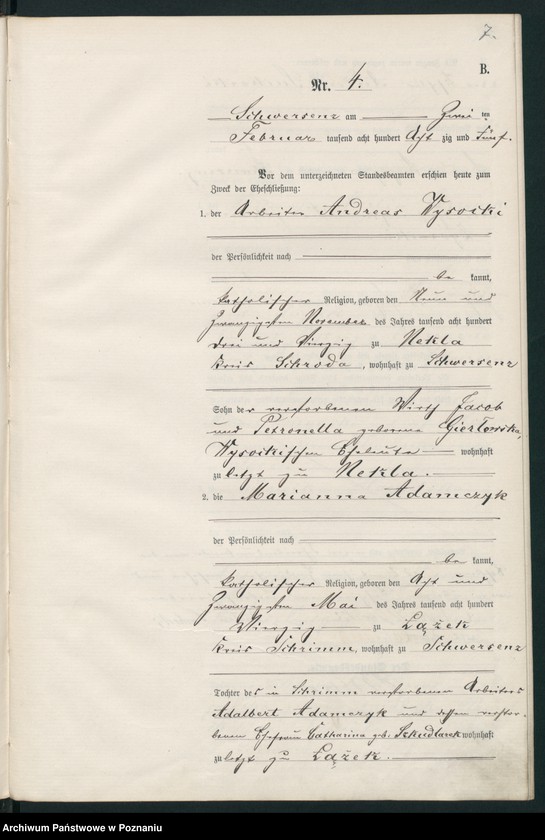 7.
B.
Nr. 4.
Schwersenz am Zwei ten
Februar tausend acht hundert Acht zig und Fünf.
Vor dem unterzeichneten Standesbeamten erschien heute zum
Zweck der Eheschließung:
1. der Arbeiter Andreas Wysocki
der Persönlichkeit nach
be kannt,
katholischer Religion, geboren den Neun und
zwanzigsten November des Jahres tausend acht hundert
drei und Vierzig zu Nekla
Kreis Schroda, wohnhaft zu Schwersenz
Sohn der verstorbenen Wirth Jacob
und Petronella geborene Gierłowska,
Wysockischen Eheleute wohnhaft
zuletzt zu Nekla.
2. die Marianna Adamczyk
der Persönlichkeit nach
be kannt,
katholischer Religion, geboren den Acht und
zwanzigsten Mai des Jahres tausend acht hundert
Vierzig zu Lążek
Kreis Schrimm, wohnhaft zu Schwersenz
Tochter des in Schrimm verstorbenen Arbeiters
Adalbert Adamczyk und dessen verstor-
benen Ehefrau Catharina geb. Szkudlarek wohnhaft
zuletzt zu Lążek.
Archiwum Państwowe w Poznaniu